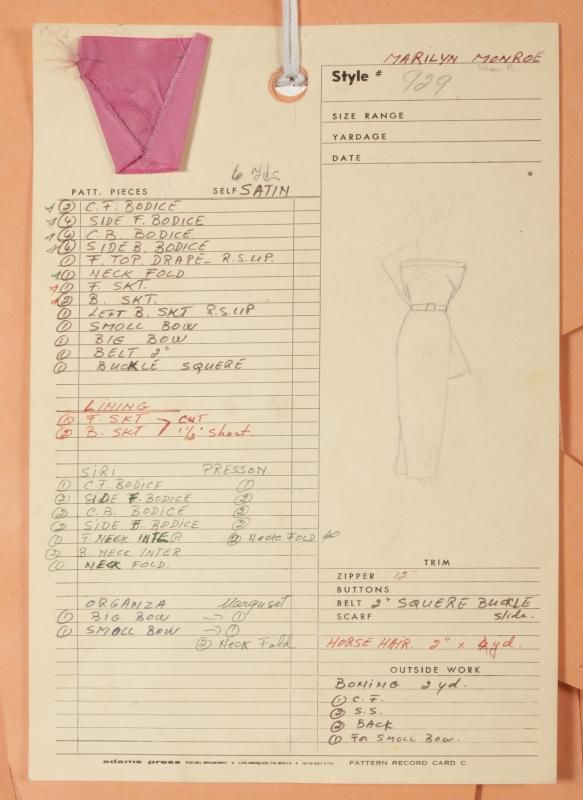 MARILYN MONROE
Style # 929
SIZE RANGE
YARDAGE
DATE
6 yds
PATT. PIECES SELF SATIN
② C.F. BODICE
④ SIDE F. BODICE
④ C.B. BODICE.
④ SIDE B. BODICE
① F. TOP. DRAPE - R.S.UP.
① NECK FOLD
① F. SKT.
② B. SKT.
① LEFT B. SKT R.S.UP
① SMOLL BOW
① BIG BOW
① BELT 2"
① BUCKLE SQUERE
LINING
① F. SKT
② B. SKT
CUT
1 1/2" Short.
SIRI PRESSON.
① C.F. BODICE ①
② SIDE F. BODICE ②
② C.B. BODICE ②
② SIDE B. BODICE ②
① F. NECK INTER ② Neck FOLD.
② B. NECK INTER
① NECK FOLD.
ORGANZA Marquset
① BIG BOW → ①
① SMOLL BOW → ①
② Neck Fold
TRIM
ZIPPER 12"
BUTTONS
BELT 2" SQUERE BUCKLE
SCARF Slide.
HORSE HAIR. 2" x 4yd.
OUTSIDE WORK
BONING 2 yd.
① C.F.
② S.S.
② BACK
① For SMOLL BOW.
adams press LOS ANGELES, CA PATTERN RECORD CARD C